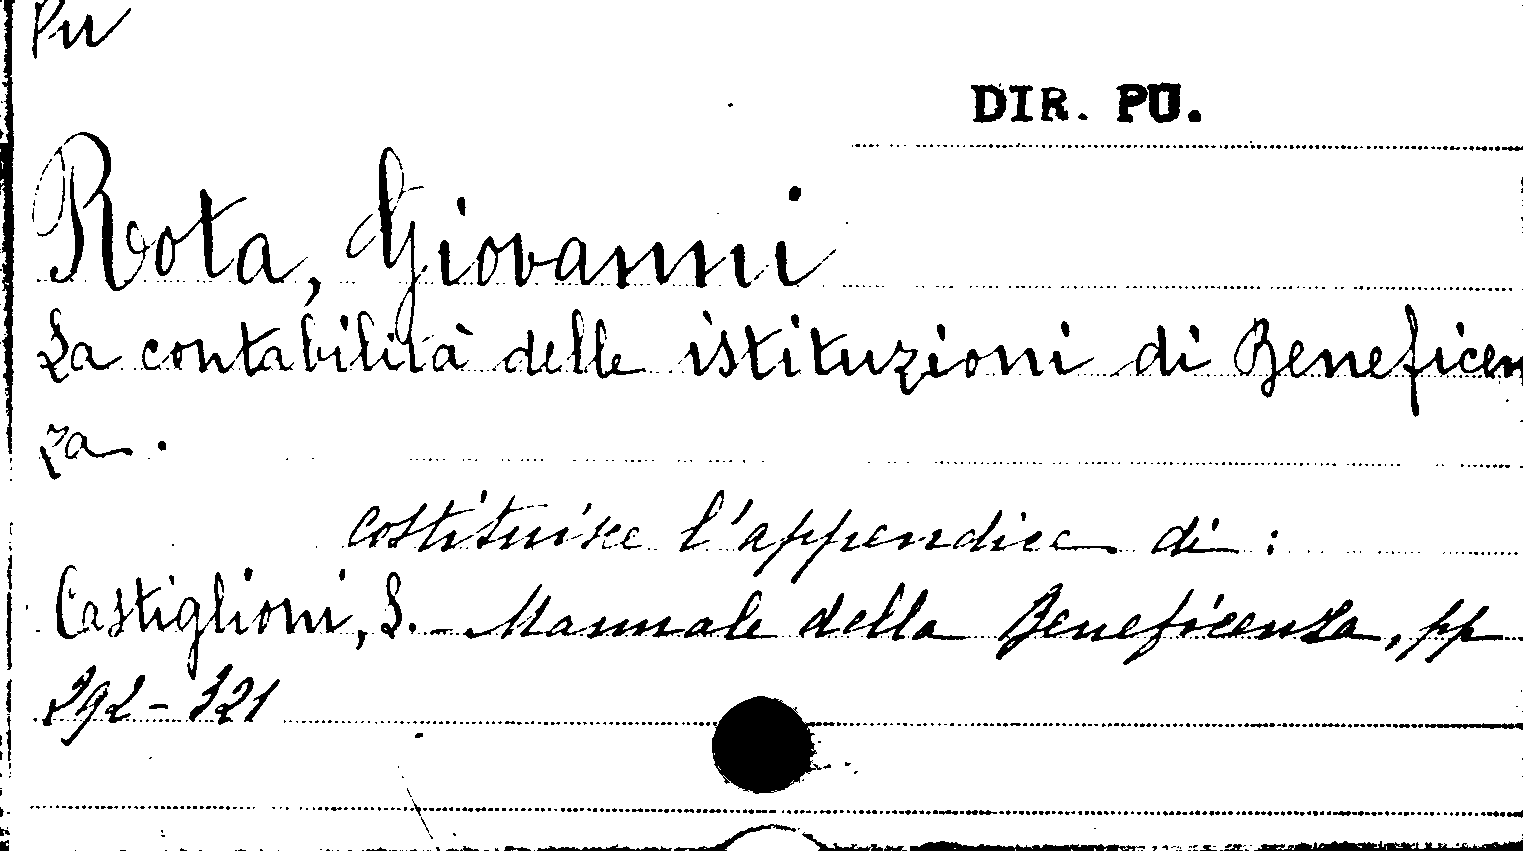 Pu
DIR. PU.
Rota, Giovanni
La contabilità delle istituzioni di Beneficen
za.
costituisce l'appendice di:
Castiglioni, S. - Manuale della Beneficenza, pp
292-321